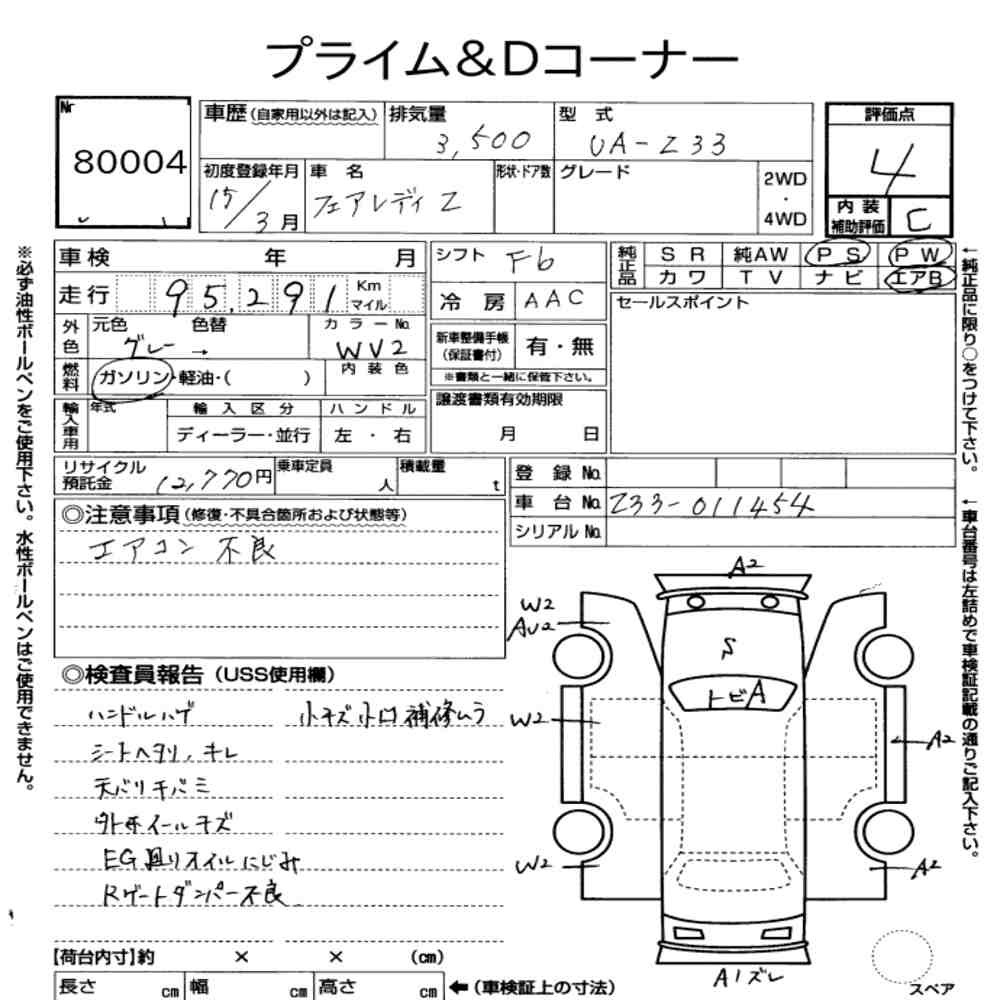 プライム&Dコーナー
Nr
80004
車歴(自家用以外は記入)
排気量
3,500
型式
UA-Z33
評価点
4
初度登録年月
15/3月
車名
フェアレディZ
形状・ドア数
グレード
2WD
・
4WD
内装
補助評価
C
車検 年 月
シフト F6
純正品
SR 純AW PS PW
カワ TV ナビ エアB
走行 95,291 Km
マイル
冷房 AAC
セールスポイント
外色
元色 色替
グレー →
カラーNo.
WV2
新車整備手帳
(保証書付)
有・無
※書類と一緒に保管下さい。
燃料
ガソリン・軽油・( )
内装色
輸入車用
年式
輸入区分
ハンドル
ディーラー・並行
左・右
譲渡書類有効期限
月 日
リサイクル
預託金
12,770円
乗車定員
人
積載量
t
登録No.
車台No. Z33-011454
シリアルNo.
◎注意事項(修復・不具合箇所および状態等)
エアコン 不良
◎検査員報告(USS使用欄)
ハンドルハゲ 小キズ小凹補修ムラ
シートヘタリ、キレ
天バリキバミ
外ホイールキズ
EG廻りオイルにじみ
Rゲートダンパー不良
【荷台内寸】約 × × (cm)
長さ cm 幅 cm 高さ cm ←(車検証上の寸法)
A2
W2
AU2
S
トビA
W2
A2
W2
A2
A1ズレ
スペア
※必ず油性ボールペンをご使用下さい。水性ボールペンはご使用できません。
←純正品に限り○をつけて下さい。
←車台番号は左詰めで車検証記載の通りご記入下さい。